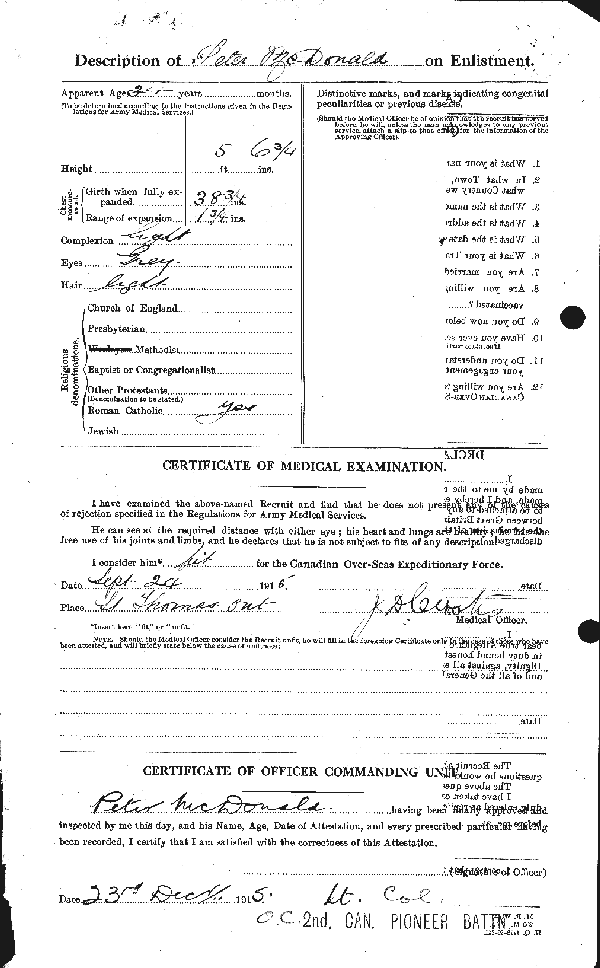 Description of Peter McDonald on Enlistment.
Apparent Age years months.
(To be determined according to the instructions given in the Regulations for Army Medical Services.)
Height 5 ft. 6 3/4 ins.
Chest measurement
Girth when fully expanded 38 3/4 ins.
Range of expansion 1 3/4 ins.
Complexion Light
Eyes Grey
Hair Light
Religious denominations.
Church of England
Presbyterian
Wesleyan Methodist
Baptist or Congregationalist
Other Protestants
(Denomination to be stated.)
Roman Catholic yes
Jewish
Distinctive marks, and marks indicating congenital
peculiarities or previous disease.
(Should the Medical Officer be of opinion that the recruit has served
before, he will, unless the man acknowledges to any previous
service, attach a slip to that effect, for the information of the
Approving Officer).
1. What is your
2. In what Town,
what Country
3. What is the name
4. What is the
5. What is the date
6. What is your
7. Are you married
8. Are you willing
vaccinated ?
9. Do you now
10. Have you ever
11. Do you understand
your engagement
12. Are you willing
CERTIFICATE OF MEDICAL EXAMINATION.
I have examined the above-named Recruit and find that he does not present any of the causes
of rejection specified in the Regulations for Army Medical Services.
He can see at the required distance with either eye; his heart and lungs are healthy; he has the
free use of his joints and limbs, and he declares that he is not subject to fits of any description.
I consider him* fit for the Canadian Over-Seas Expeditionary Force.
Date Sept 24 1915
Place St Thomas Ont
Medical Officer.
*Insert here "fit" or "unfit."
NOTE. Should the Medical Officer consider the Recruit unfit, he will fill in the foregoing Certificate only in the case of those who have
been attested, and will briefly state below the cause of unfitness:
CERTIFICATE OF OFFICER COMMANDING UNIT.
Peter McDonald having been finally approved and
inspected by me this day, and his Name, Age, Date of Attestation, and every prescribed particular having
been recorded, I certify that I am satisfied with the correctness of this Attestation.
(Signature of Officer)
Date 23rd Dec. 1915. Lt Col.
O.C. 2nd. CAN. PIONEER BATTN